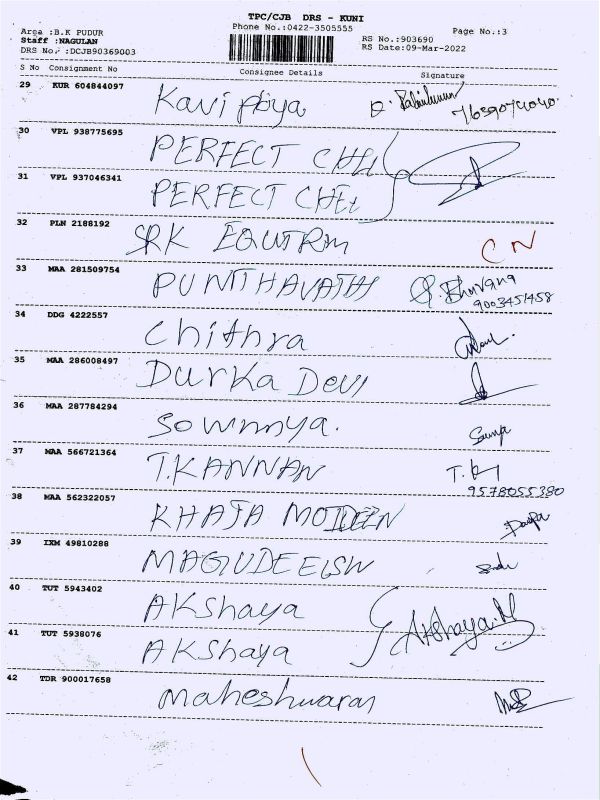 TPC/CJB DRS - KUNI
Phone No.:0422-3505555
Area :B.K PUDUR
Staff :NAGULAN
DRS No.:DCJB90369003
RS No.:903690
RS Date:09-Mar-2022
Page No.:3
S No Consignment No Consignee Details Signature
29 KUR 604844097 Kavi 7639074040
30 VPL 938775695 PERFECT
31 VPL 937046341 PERFECT
32 PLN 2188192 SRK CN
33 MAA 281509754 PUNITHAVATHI Bhuvana
9003451458
34 DDG 4222557 Chithra
35 MAA 286008497 DURKA DEVI
36 MAA 287784294 Sowmya.
37 MAA 566721364 T.KANNAN T.K
9578055380
38 MAA 562322057 KHAJA MOIDEEN
39 IXM 49810288
40 TUT 5943402 AKShaya Akshaya.M
41 TUT 5938076 AKShaya
42 TDR 900017658 Maheshwaran